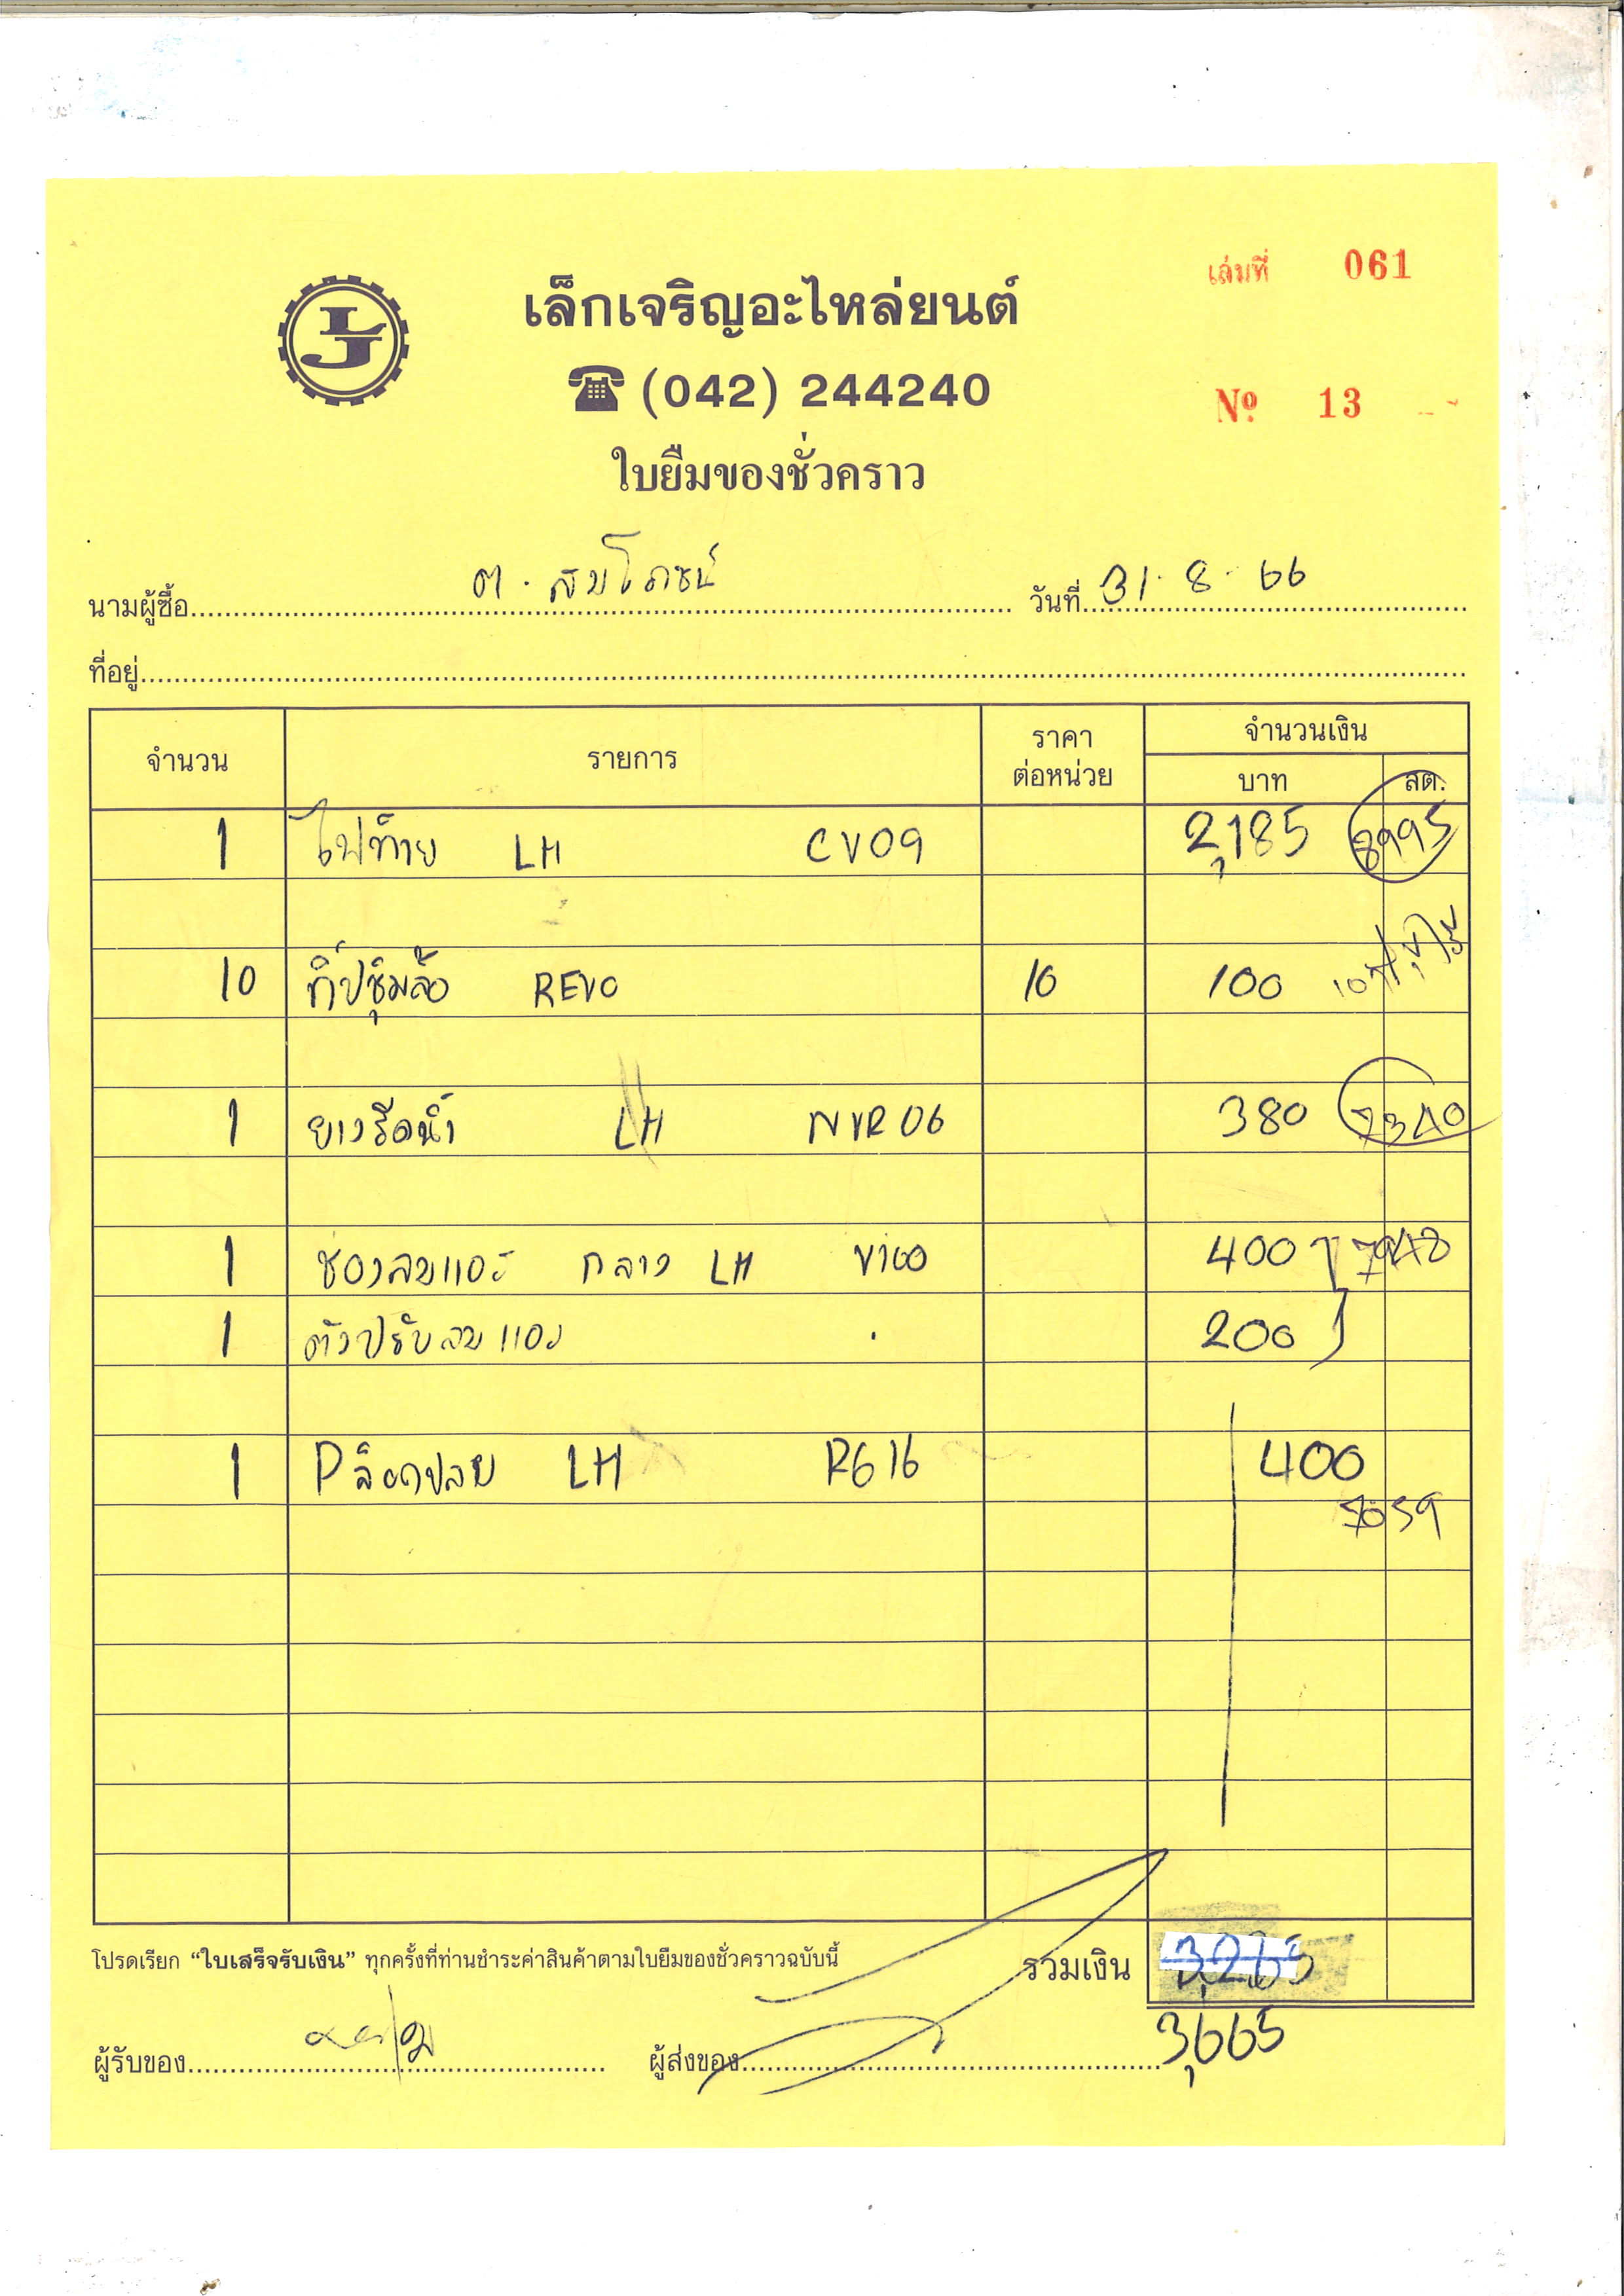 เล่มที่ 061
LJ
เล็กเจริญอะไหล่ยนต์
(042) 244240
Nº 13
ใบยืมของชั่วคราว
นามผู้ซื้อ ต. สัมโภชน์ วันที่ 31.8.66
ที่อยู่
จำนวน รายการ ราคาต่อหน่วย จำนวนเงิน
บาท สต.
1 ไฟท้าย LH CV09 2,185 8995
10 กิ๊ปซุ้มล้อ REVO 10 100
1 ยางรีดน้ำ LH NVR06 380 7340
1 ช่องลมแอร์ กลาง LH VIGO 400
1 ตัวปรับลมแอร์ 200
1 Pล็อคปลาย LH RG16 400
5059
โปรดเรียก “ใบเสร็จรับเงิน” ทุกครั้งที่ท่านชำระค่าสินค้าตามใบยืมของชั่วคราวฉบับนี้ รวมเงิน 3,265
3,665
ผู้รับของ ผู้ส่งของ